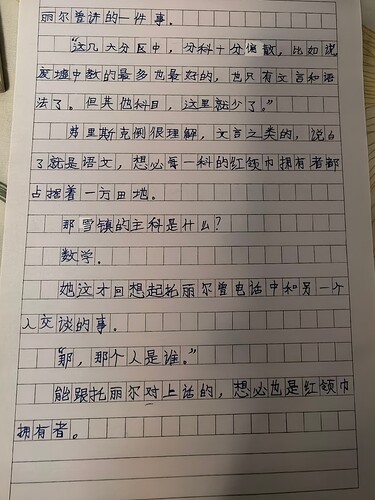 丽尔曾讲的一件事。
“这几大分区中，分科十分偏散，比如说
废墟中教的最多也最好的，也只有文言和语
法了。但其他科目，这里就少了。”
弗里斯克倒很理解，文言之类的，说白
了就是语文，想必每一科的红领巾拥有者都
占据着一方田地。
那雪镇的主科是什么？
数学。
她这才回想起托丽尔曾电话中和另一个
人交谈的事。
“那，那个人是谁。”
能跟托丽尔对上话的，想必也是红领巾
拥有者。